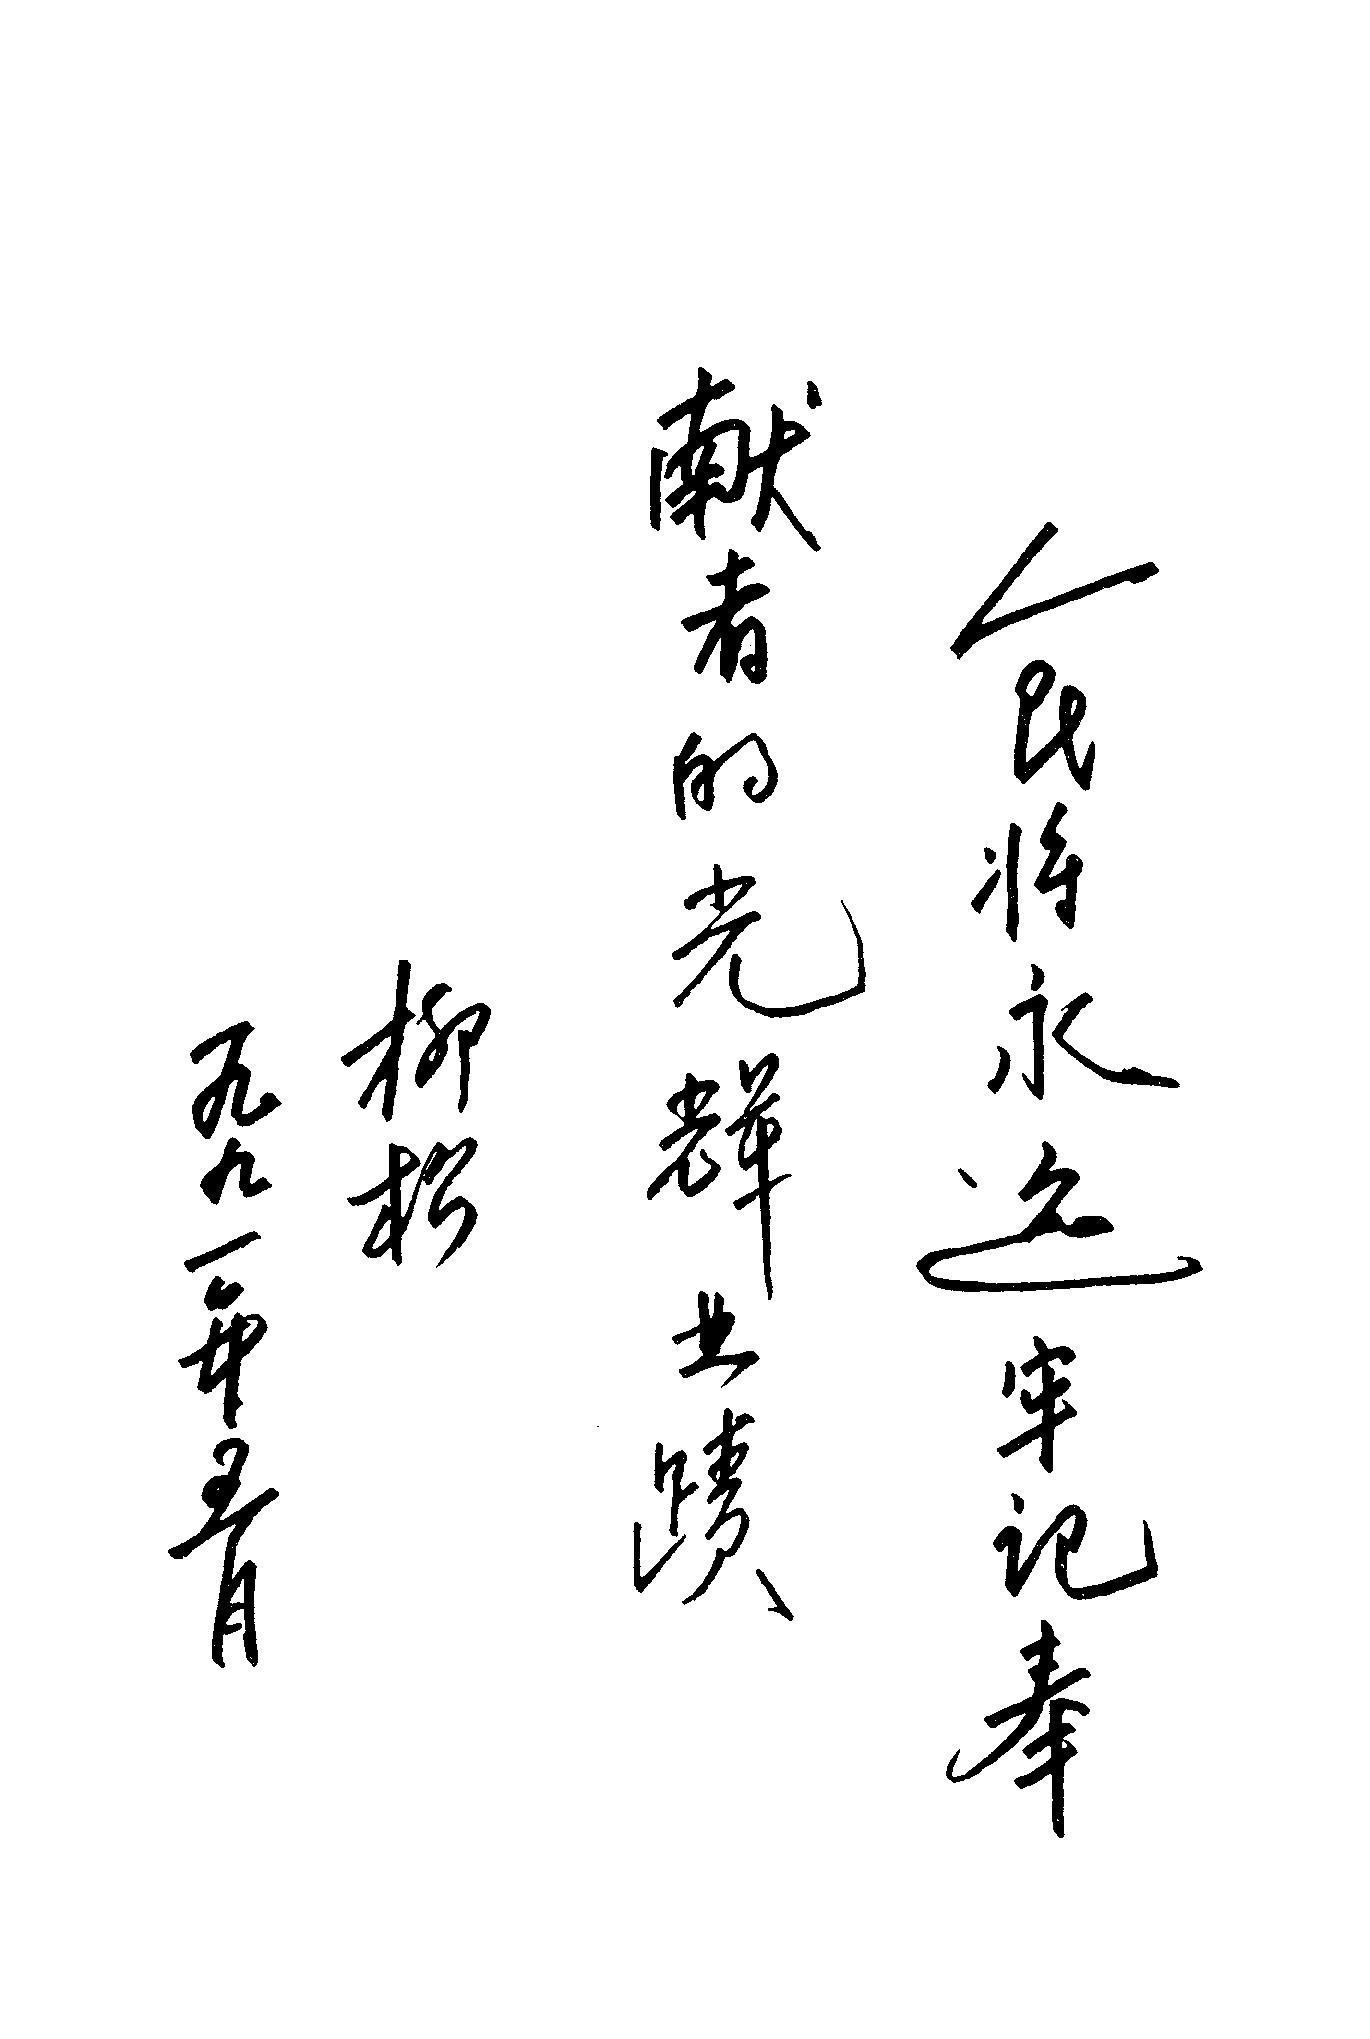 人民将永远牢记奉
献者的光辉业蹟
柳松
一九九一年五月